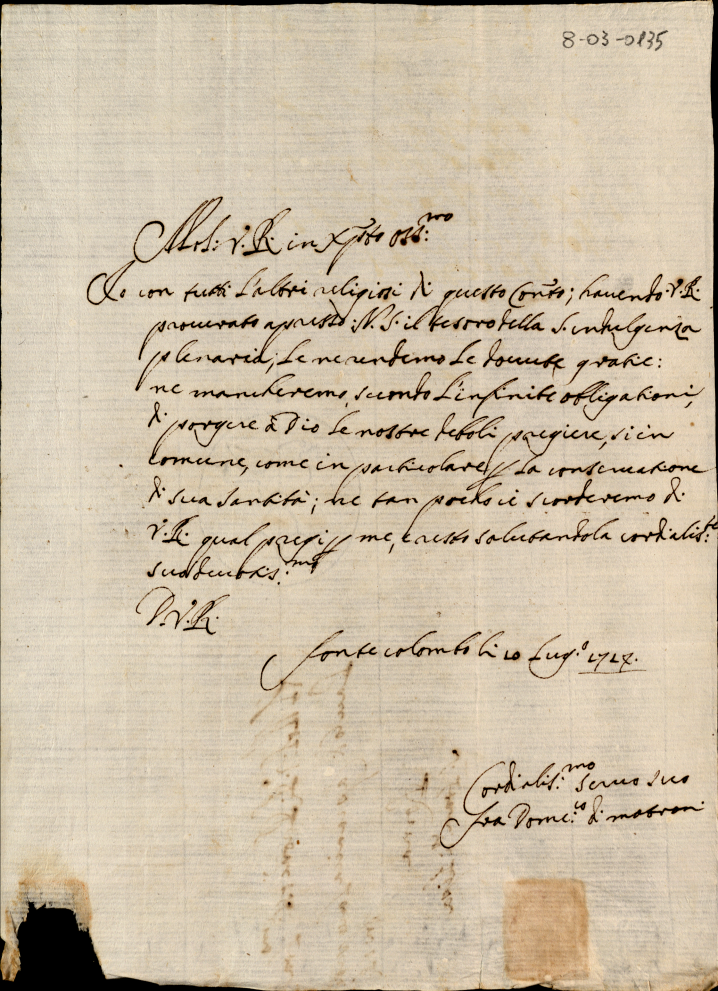 8-03-0835
Mol: V. R. in Xpsto oss:mo
Io con tutti l'altri religiosi di questo Conto; havendo V. R.
procurato apresso N. S. il tesoro della S. indulgenza
plenaria, le ne rendemo le douute gratie:
ne mancheremo, secondo l'infinite obligationi,
di porgere à Dio le nostre deboli pregiere, si in
comune, come in particolare p la conseruatione
di sua santità; ne tan poco ci scorderemo di
V. R. qual pregi p me, e resto salutandola cordialis:te
suo deuotis:mo
D. V. R.
Fonte colombo li 10 Lug.o 1727.
Cordialis:mo seruo suo
fra Dome:co di